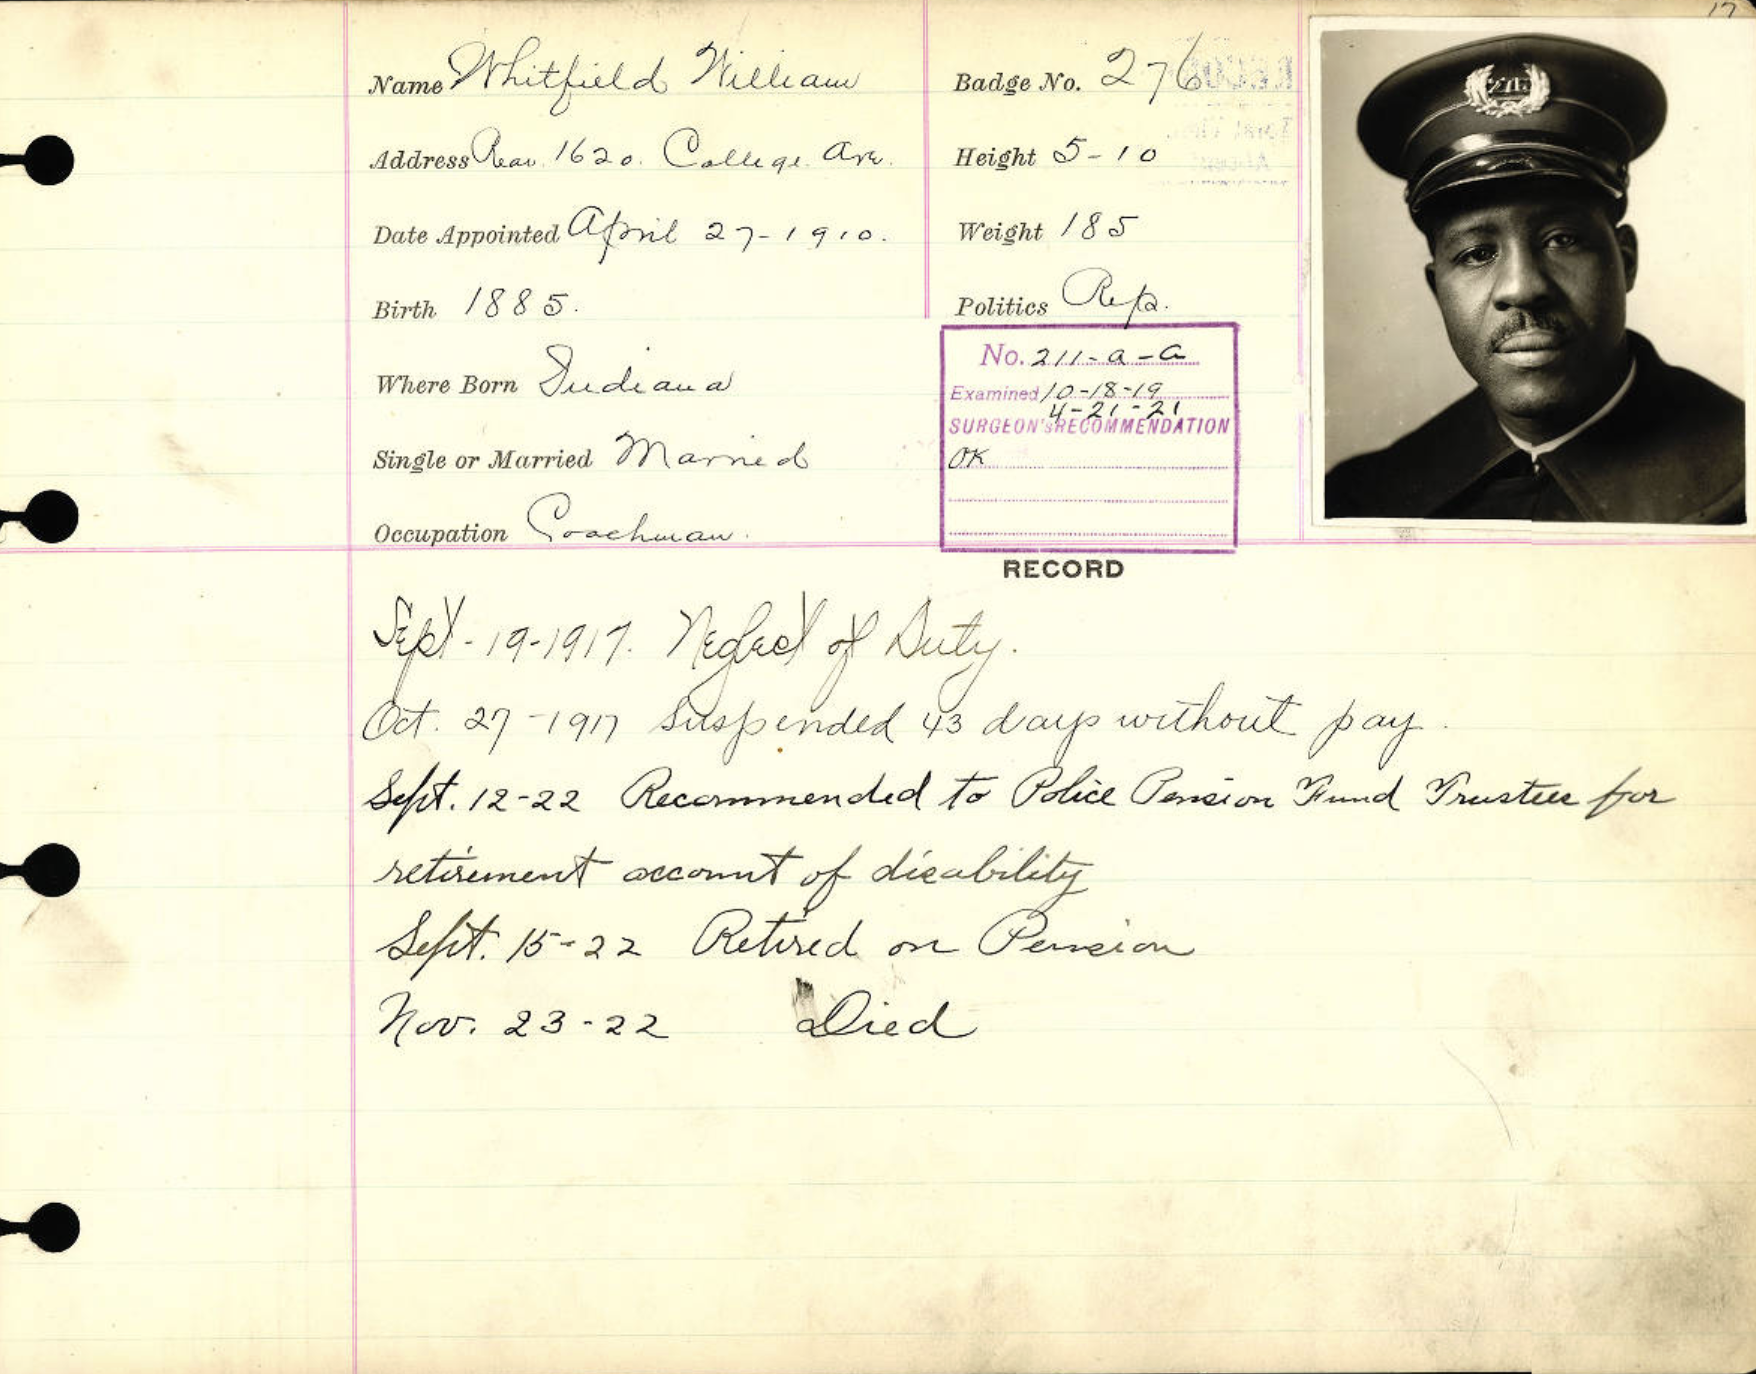 17
Name Whitfield William
Badge No. 276
Address Rear. 1620. College. Ave.
Height 5-10
Date Appointed April 27-1910.
Weight 185
Birth 1885.
Politics Rep.
Where Born Indiana
No. 211-a-a
Examined 10-18-19
4-21-21
SURGEON'S RECOMMENDATION
OK
Single or Married Married
Occupation Coachman.
RECORD
Sept-19-1917. Neglect of Duty.
Oct. 27-1917 Suspended 43 days without pay.
Sept. 12-22 Recommended to Police Pension Fund Trustees for
retirement account of disability
Sept. 15-22 Retired on Pension
Nov. 23-22 Died